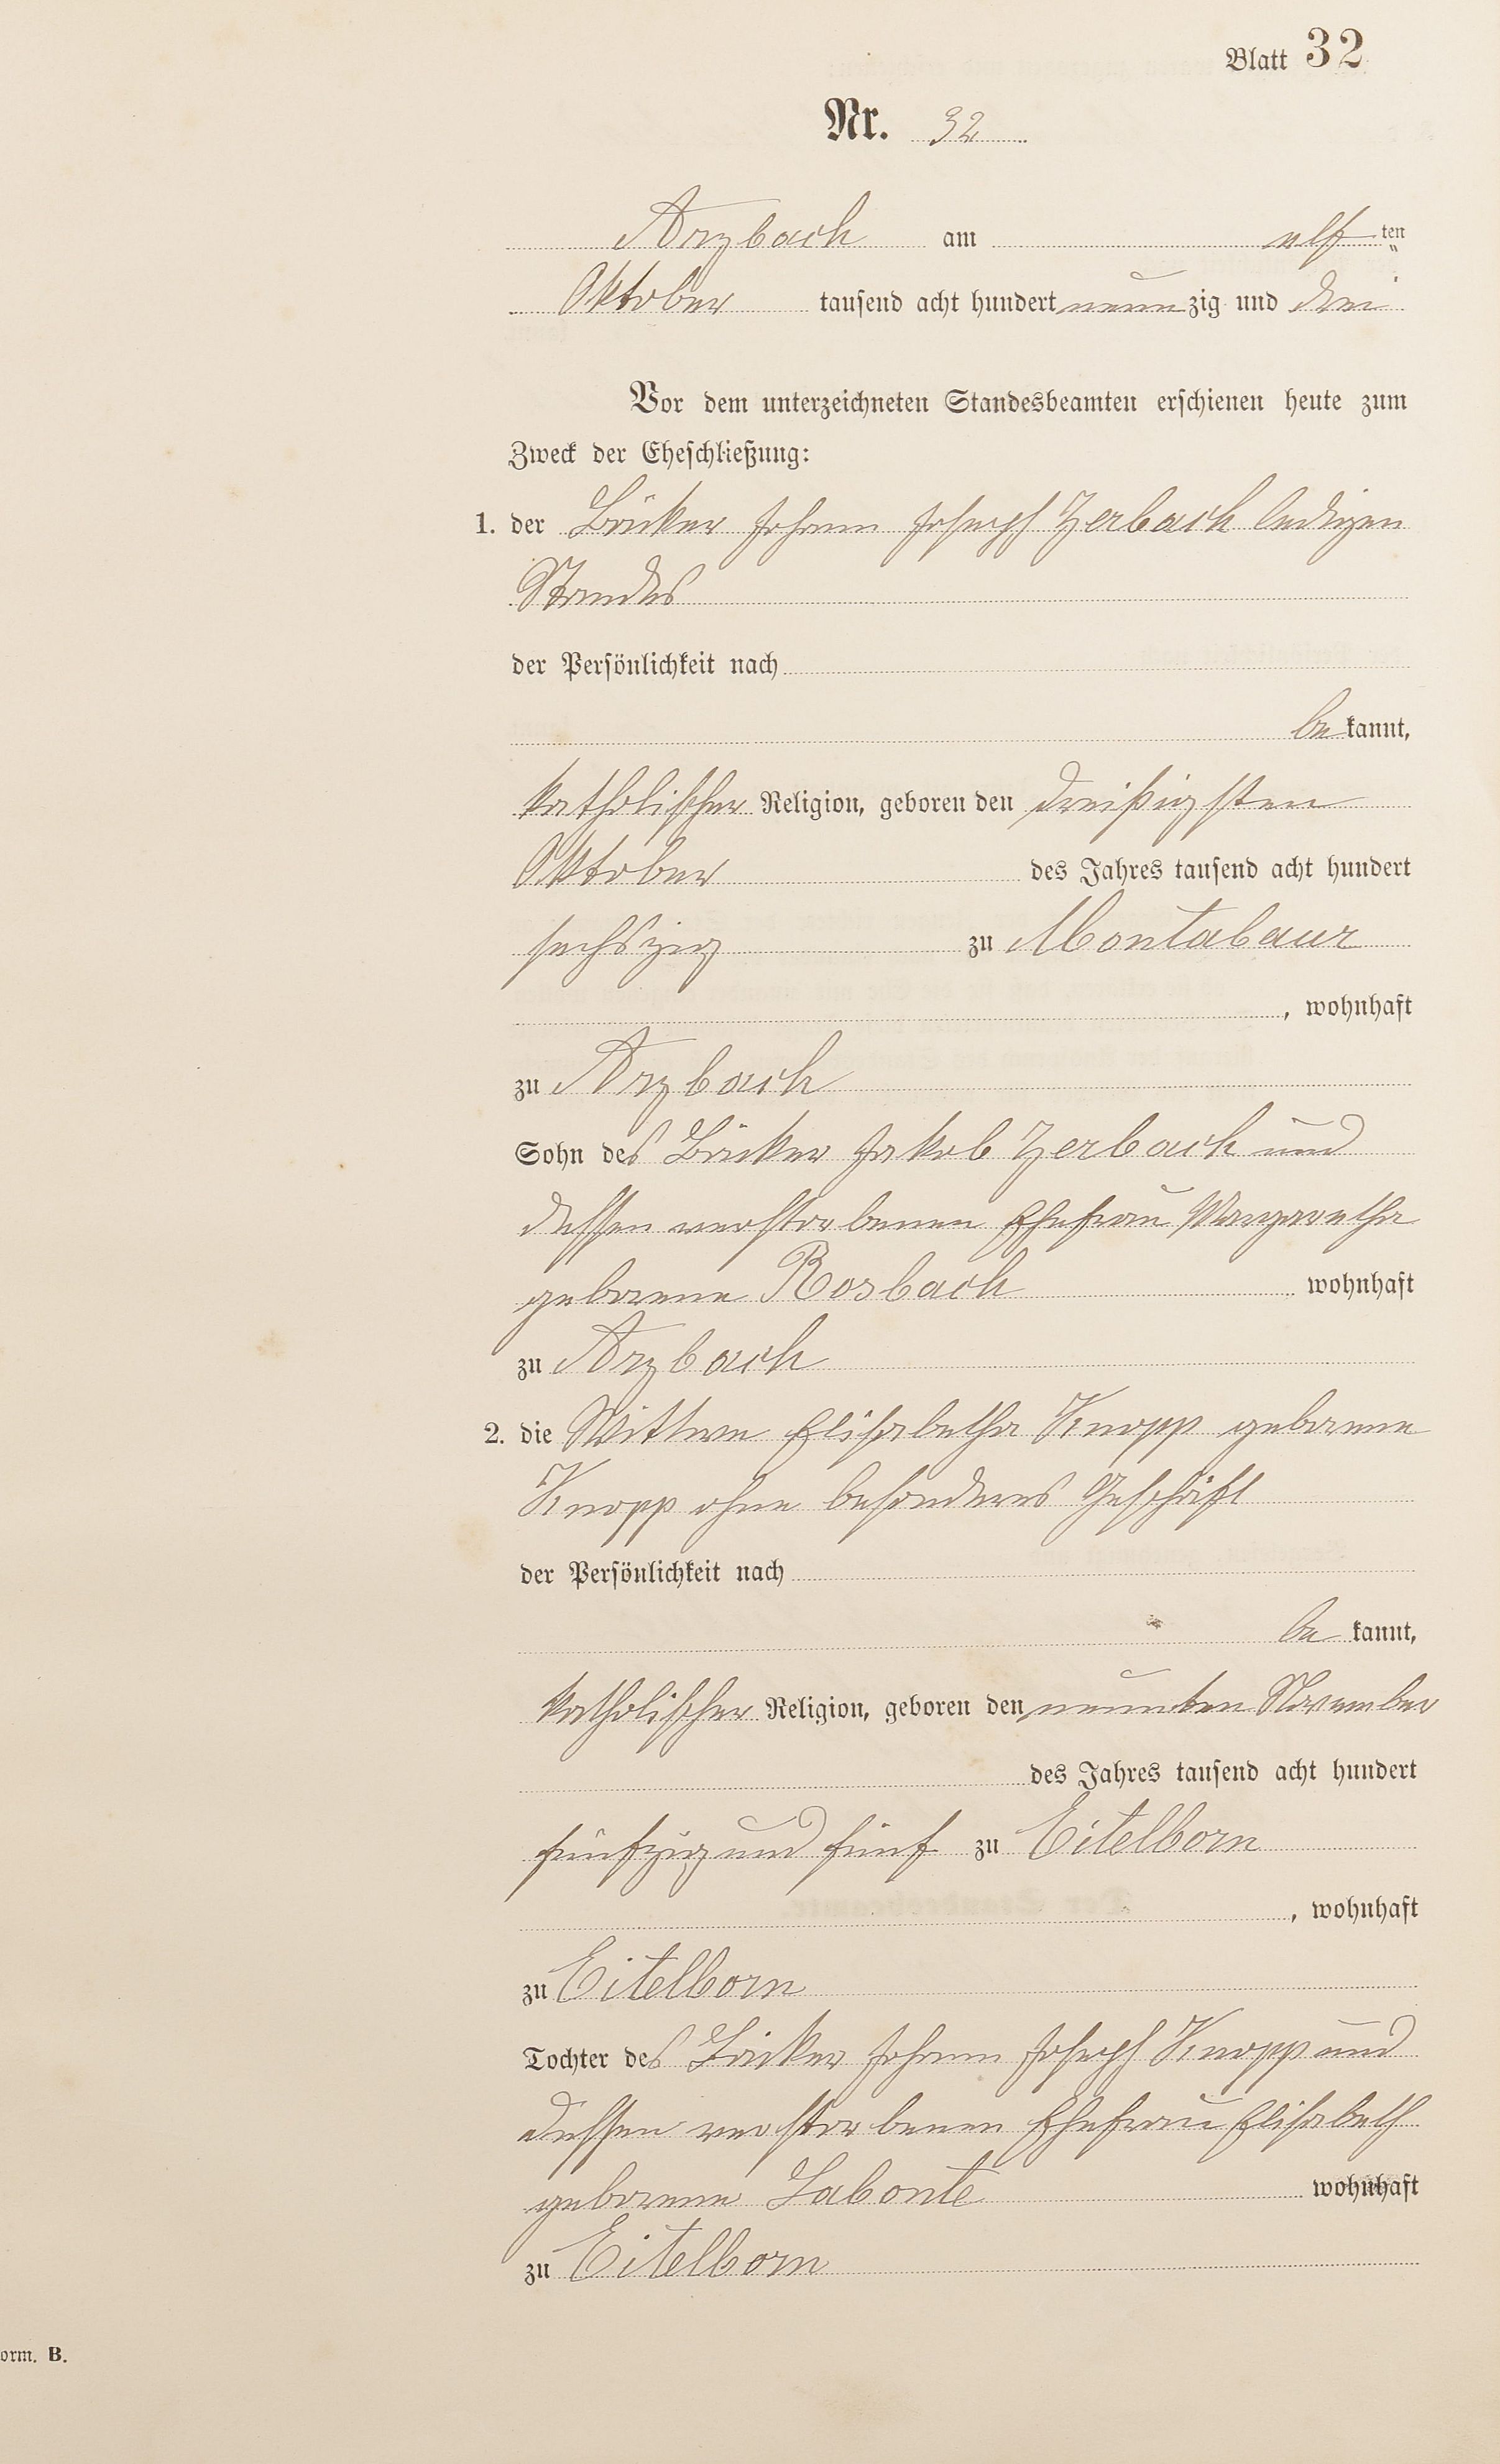 Blatt 32
Nr. 32
Arzbach am elf ten
Oktober tausend acht hundert neun zig und drei
Vor dem unterzeichneten Standesbeamten erschienen heute zum
Zweck der Eheschließung:
1. der Bäcker Johann Joseph Zerbach ledigen
Standes
der Persönlichkeit nach
be kannt,
katholischer Religion, geboren den dreißigsten
Oktober des Jahres tausend acht hundert
sechszig zu Montabaur
, wohnhaft
zu Arzbach
Sohn des Bäcker Jakob Zerbach und
dessen verstorbenen Ehefrau Margaretha
geborene Rosbach wohnhaft
zu Arzbach
2. die Wittwe Elisabetha Knopp geborene
Knopp ohne besonderes Geschäft
der Persönlichkeit nach
be kannt,
katholischer Religion, geboren den neunten November
des Jahres tausend acht hundert
fünfzig und fünf zu Eitelborn
, wohnhaft
zu Eitelborn
Tochter des Bäcker Johann Joseph Knopp und
dessen verstorbenen Ehefrau Elisabeth
geborene Labonte wohnhaft
zu Eitelborn
orm. B.